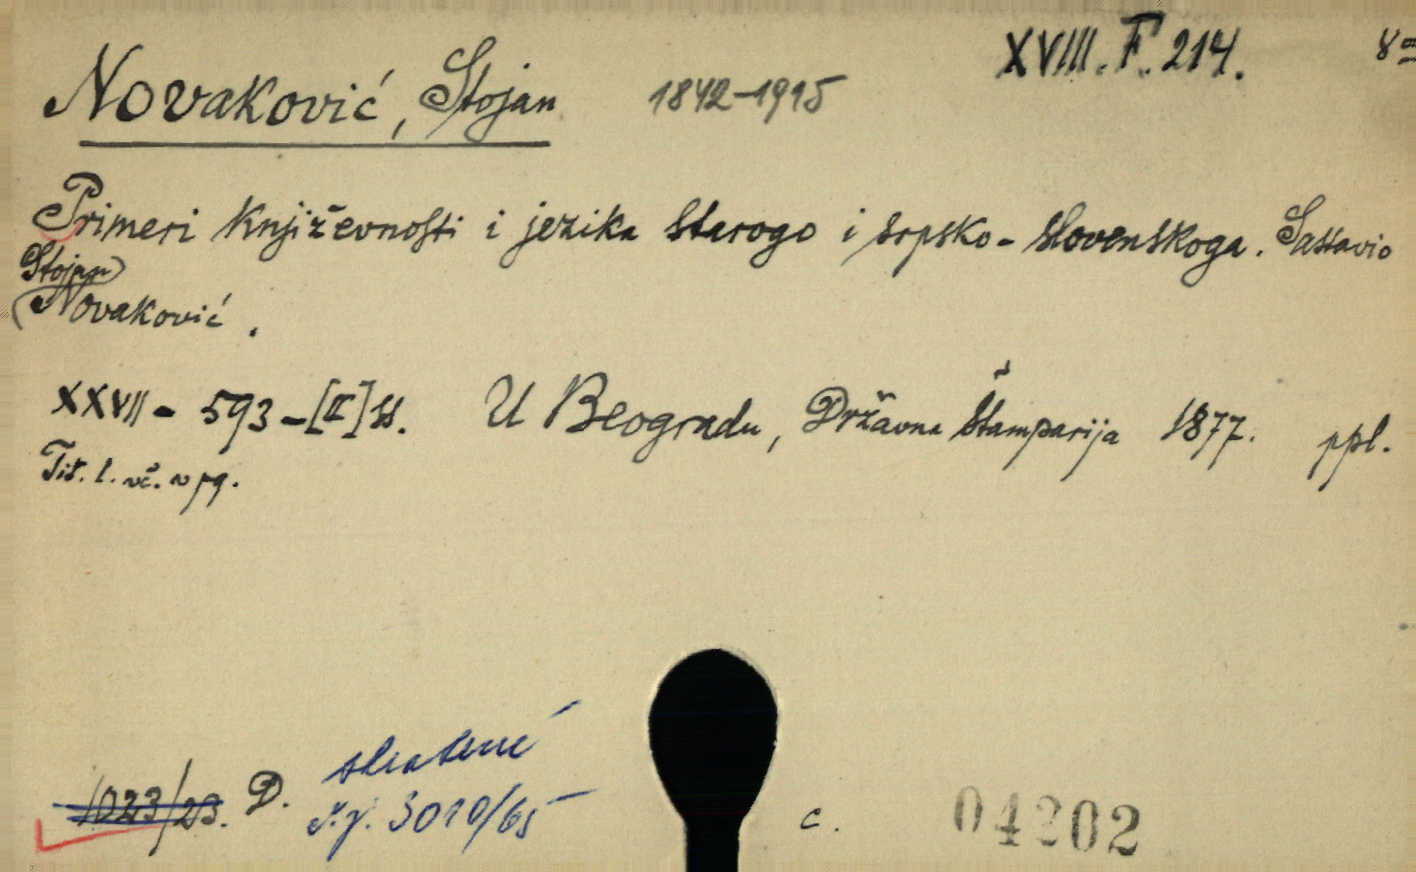 XVIII. F. 214. 8°
Novaković, Stojan 1842-1915
Primeri književnosti i jezika starogo i srpsko-slovenskoga. Sastavio
Stojan
Novaković.
XXVII - 593 - [II] ss. U Beogradu, Državna Štamparija 1877. ppl.
Tit. l. vč. v pg.
1023/23. D. stratené
č.j. 3010/65
c. 04202